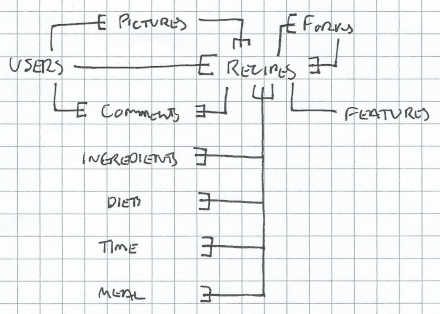 PICTURES
FORKS
USERS
RECIPES
COMMENTS
FEATURES
INGREDIENTS
DIETS
TIME
MEAL